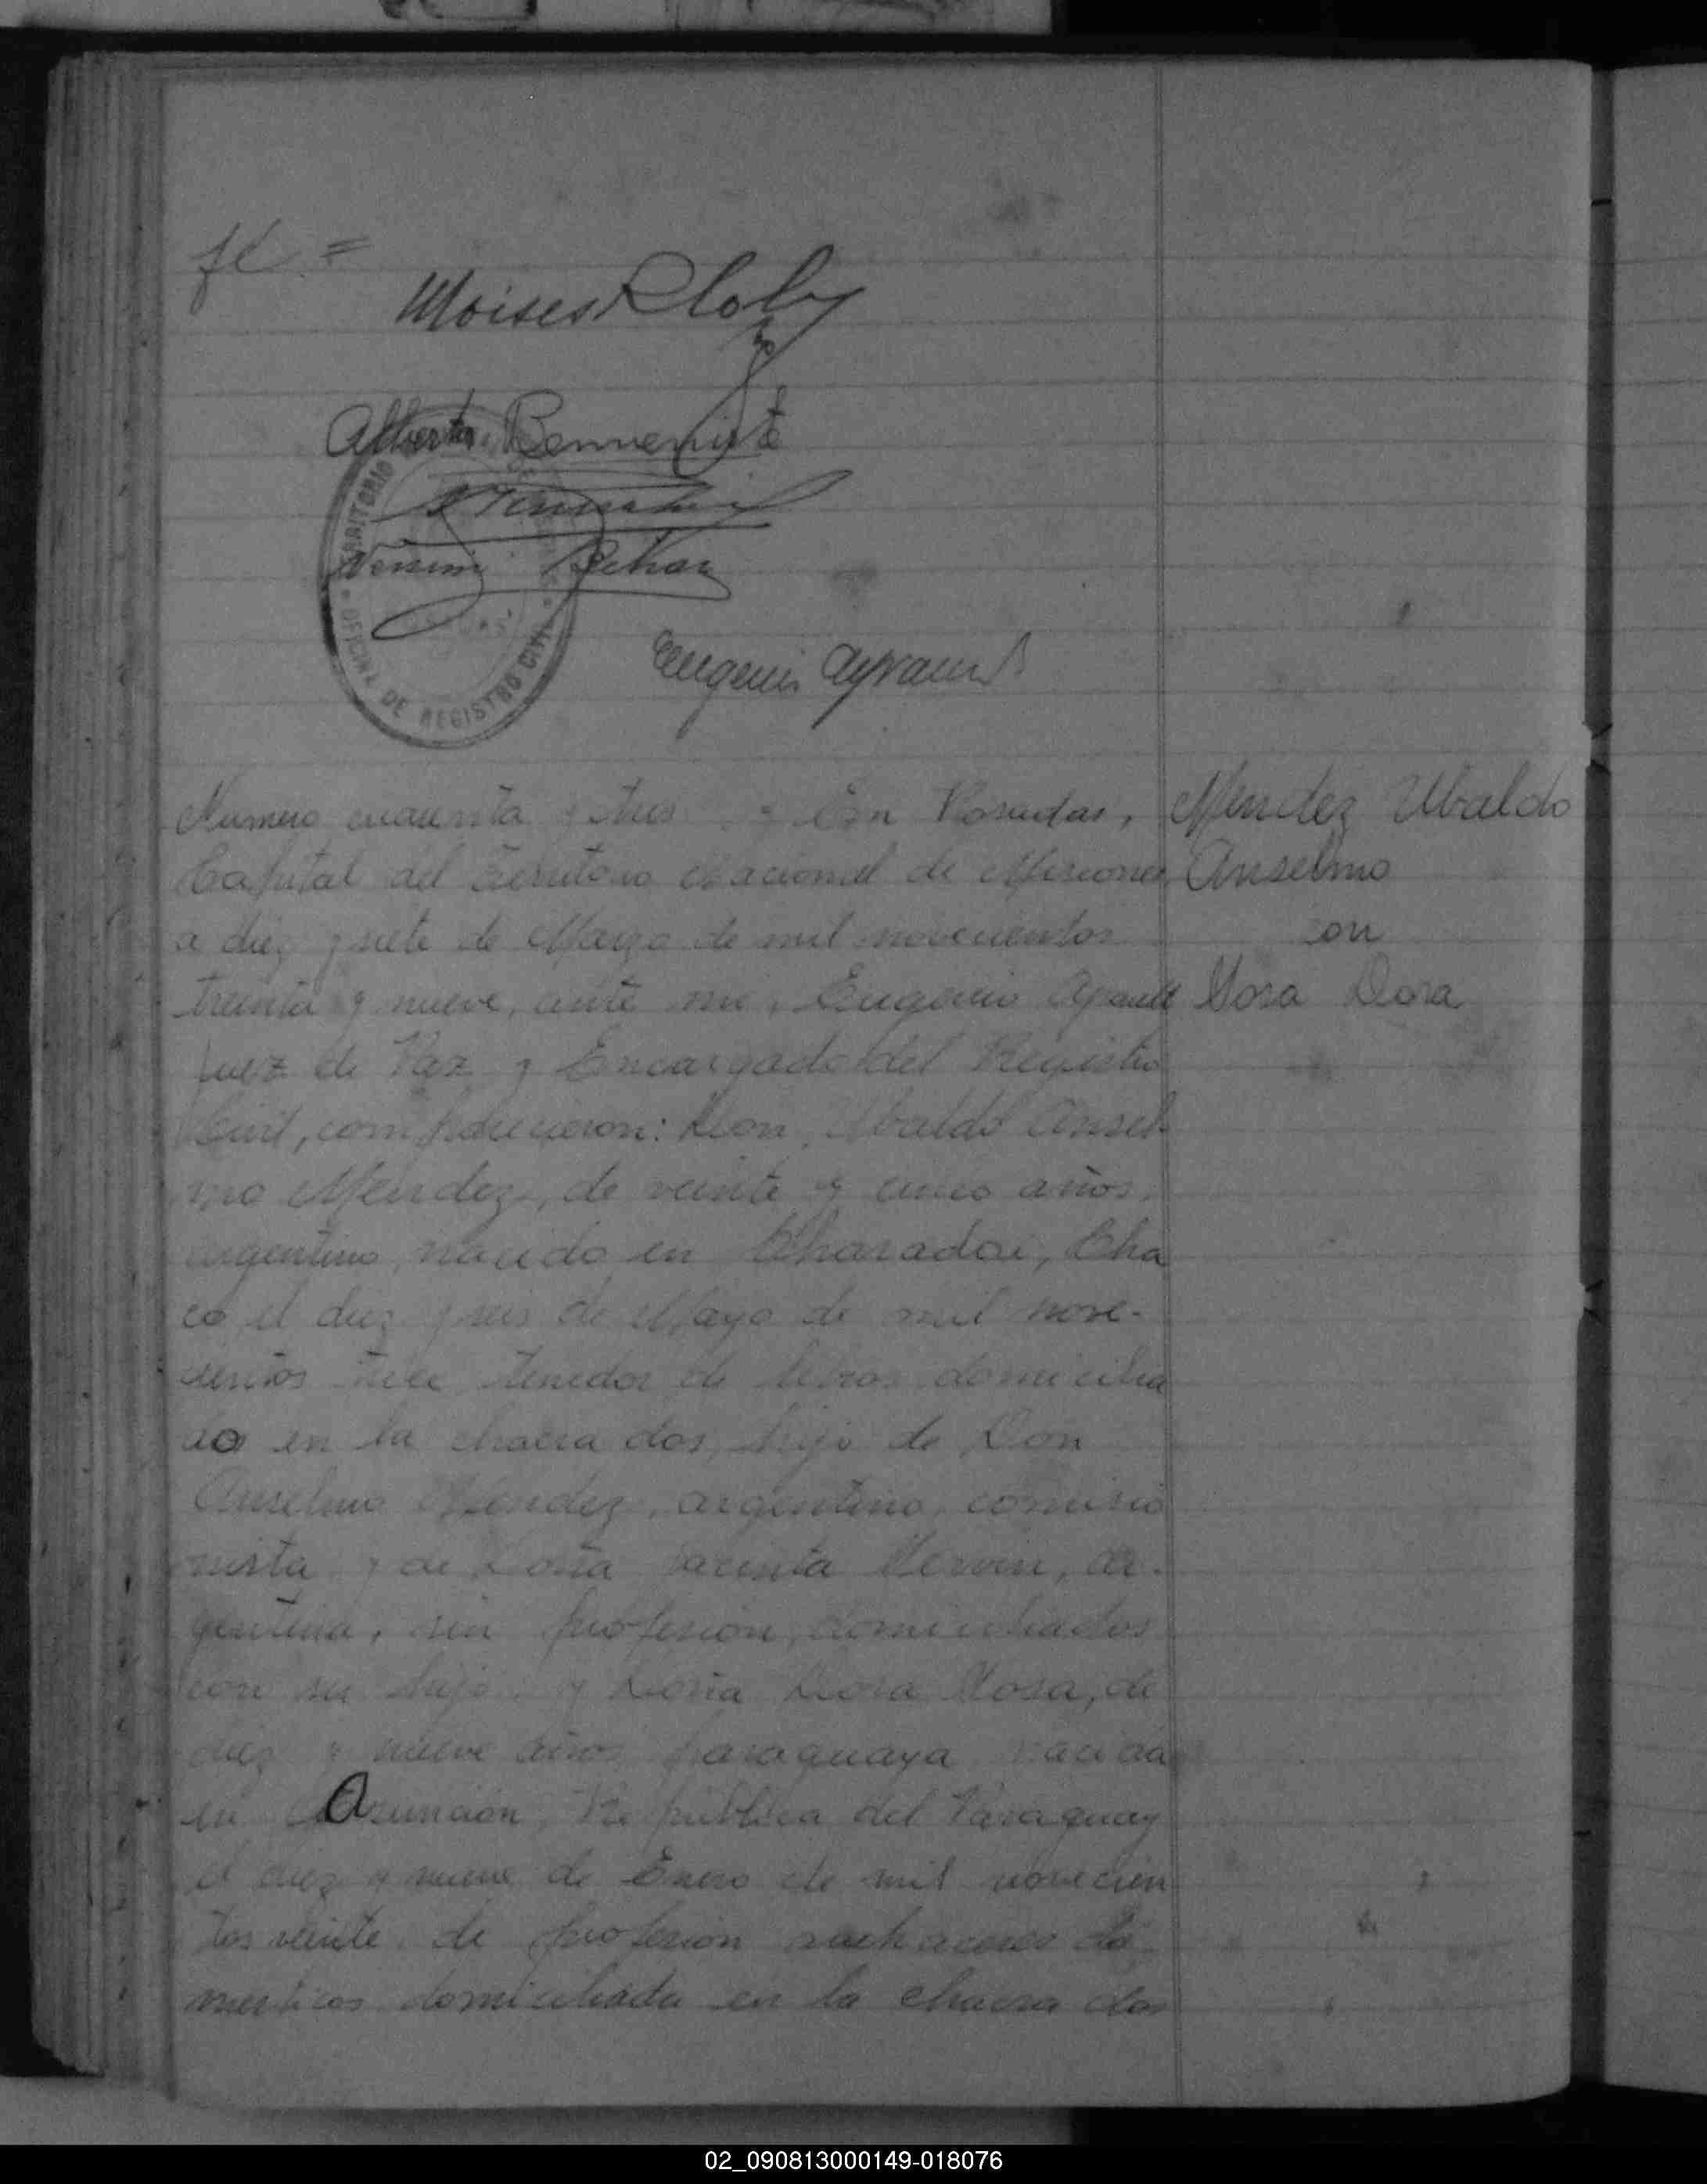 fé. =
Moises
Alberto Benveniste
Nissim Behar
TERRITORIO
OFICINA DE REGISTRO CIVIL
Eugenio Ayrault
Numero cuarenta y tres . - En Posadas,
Capital del Territorio Nacional de Misiones
a diez y siete de Marzo de mil novecientos
treinta y nueve, ante mi, Eugenio Ayrault
Juez de Paz y Encargado del Registro
Civil, comparecieron: Don Ubaldo Ansel-
mo Méndez, de veinte y cinco años,
argentino, nacido en Charadai, Cha
co el diez y seis de Mayo de mil nove-
cientos trece tenedor de libros domicilia
do en la chacra dos, hijo de Don
Anselmo Méndez, argentino, comisio
nista y de Doña Jacinta ar-
gentina, sin profesion, domiciliados
con su hijo. y Doña Dora Sosa, de
diez y nueve años paraguaya nacida
en Asunción, Republica del Paraguay
el diez y nueve de Enero de mil novecien
tos veinte. de profesion quehaceres do-
mesticos domiciliada en la chacra dos
Mendez Ubaldo
Anselmo
con
Sosa Dora
02_090813000149-018076